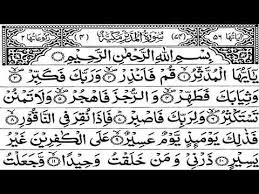 اٰيَاتُهَا ٥٦ (٧٤) سُوْرَةُ الْمُدَّثِّرِ مَكِّيَّةٌ (٤) رُكُوْعَاتُهَا ٢
بِسْمِ اللّٰهِ الرَّحْمٰنِ الرَّحِيْمِ
يٰۤاَيُّهَا الْمُدَّثِّرُ ۙ قُمْ فَاَنْذِرْ ۙ وَرَبَّكَ فَكَبِّرْ ۙ
وَثِيَابَكَ فَطَهِّرْ ۙ وَالرُّجْزَ فَاهْجُرْ ۙ وَلَا تَمْنُنْ
تَسْتَكْثِرُ ۙ وَلِرَبِّكَ فَاصْبِرْ ؕ فَاِذَا نُقِرَ فِي النَّاقُوْرِ ۙ
فَذٰلِكَ يَوْمَئِذٍ يَّوْمٌ عَسِيْرٌ ۙ عَلَى الْكٰفِرِيْنَ غَيْرُ
يَسِيْرٍ ۙ ذَرْنِيْ وَمَنْ خَلَقْتُ وَحِيْدًا ۙ وَّجَعَلْتُ